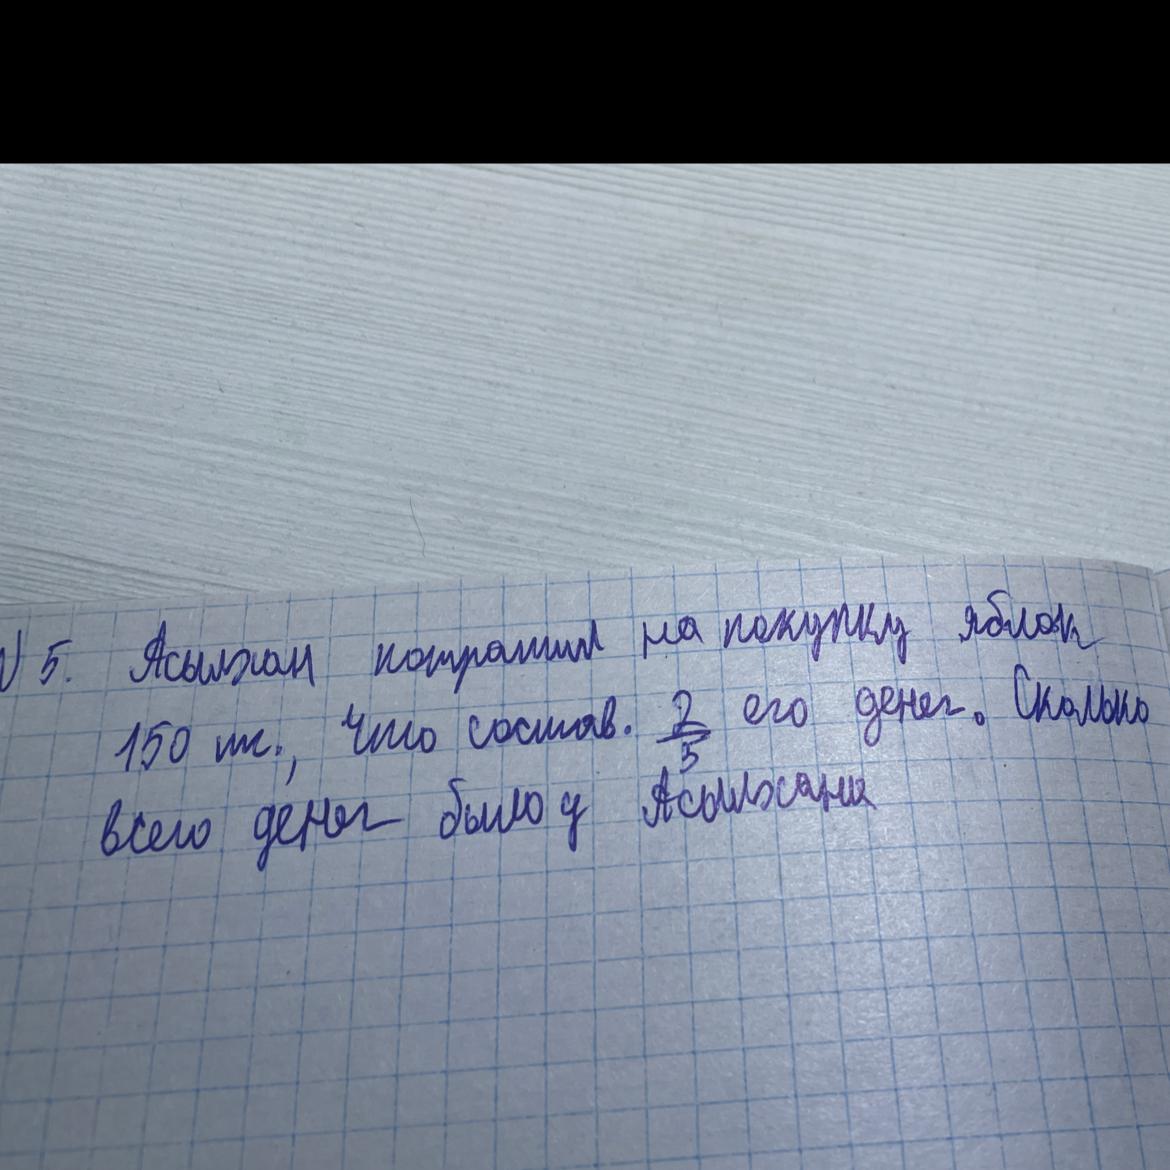 № 5. Асылжан потратил на покупку яблок
150 тг., что состав. 2/5 его денег. Сколько
всего денег было у Асылжана